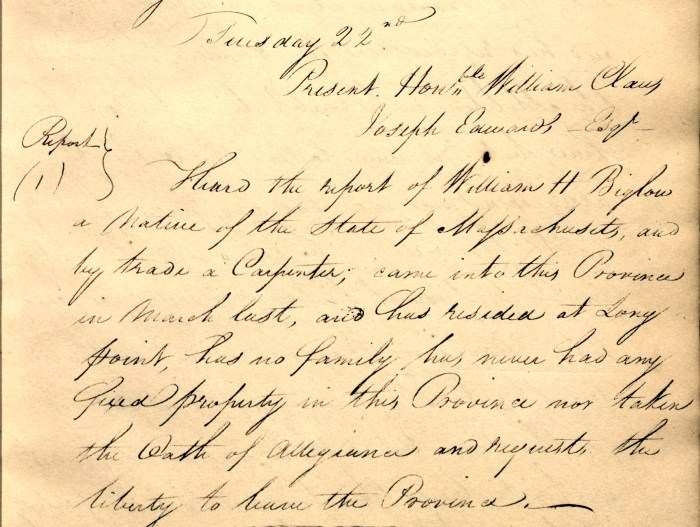 Tuesday 22nd
Present. Honble William Claus
Joseph Edwards Esqr
Report
(1)
Heard the report of William H Biglow
a Native of the State of Massachusits, and
by trade a Carpenter, came into this Province
in March last, and has resided at Long
point, has no family has never had any
fixed property in this Province nor taken
the Oath of Allegiance and requests the
liberty to leave the Province.